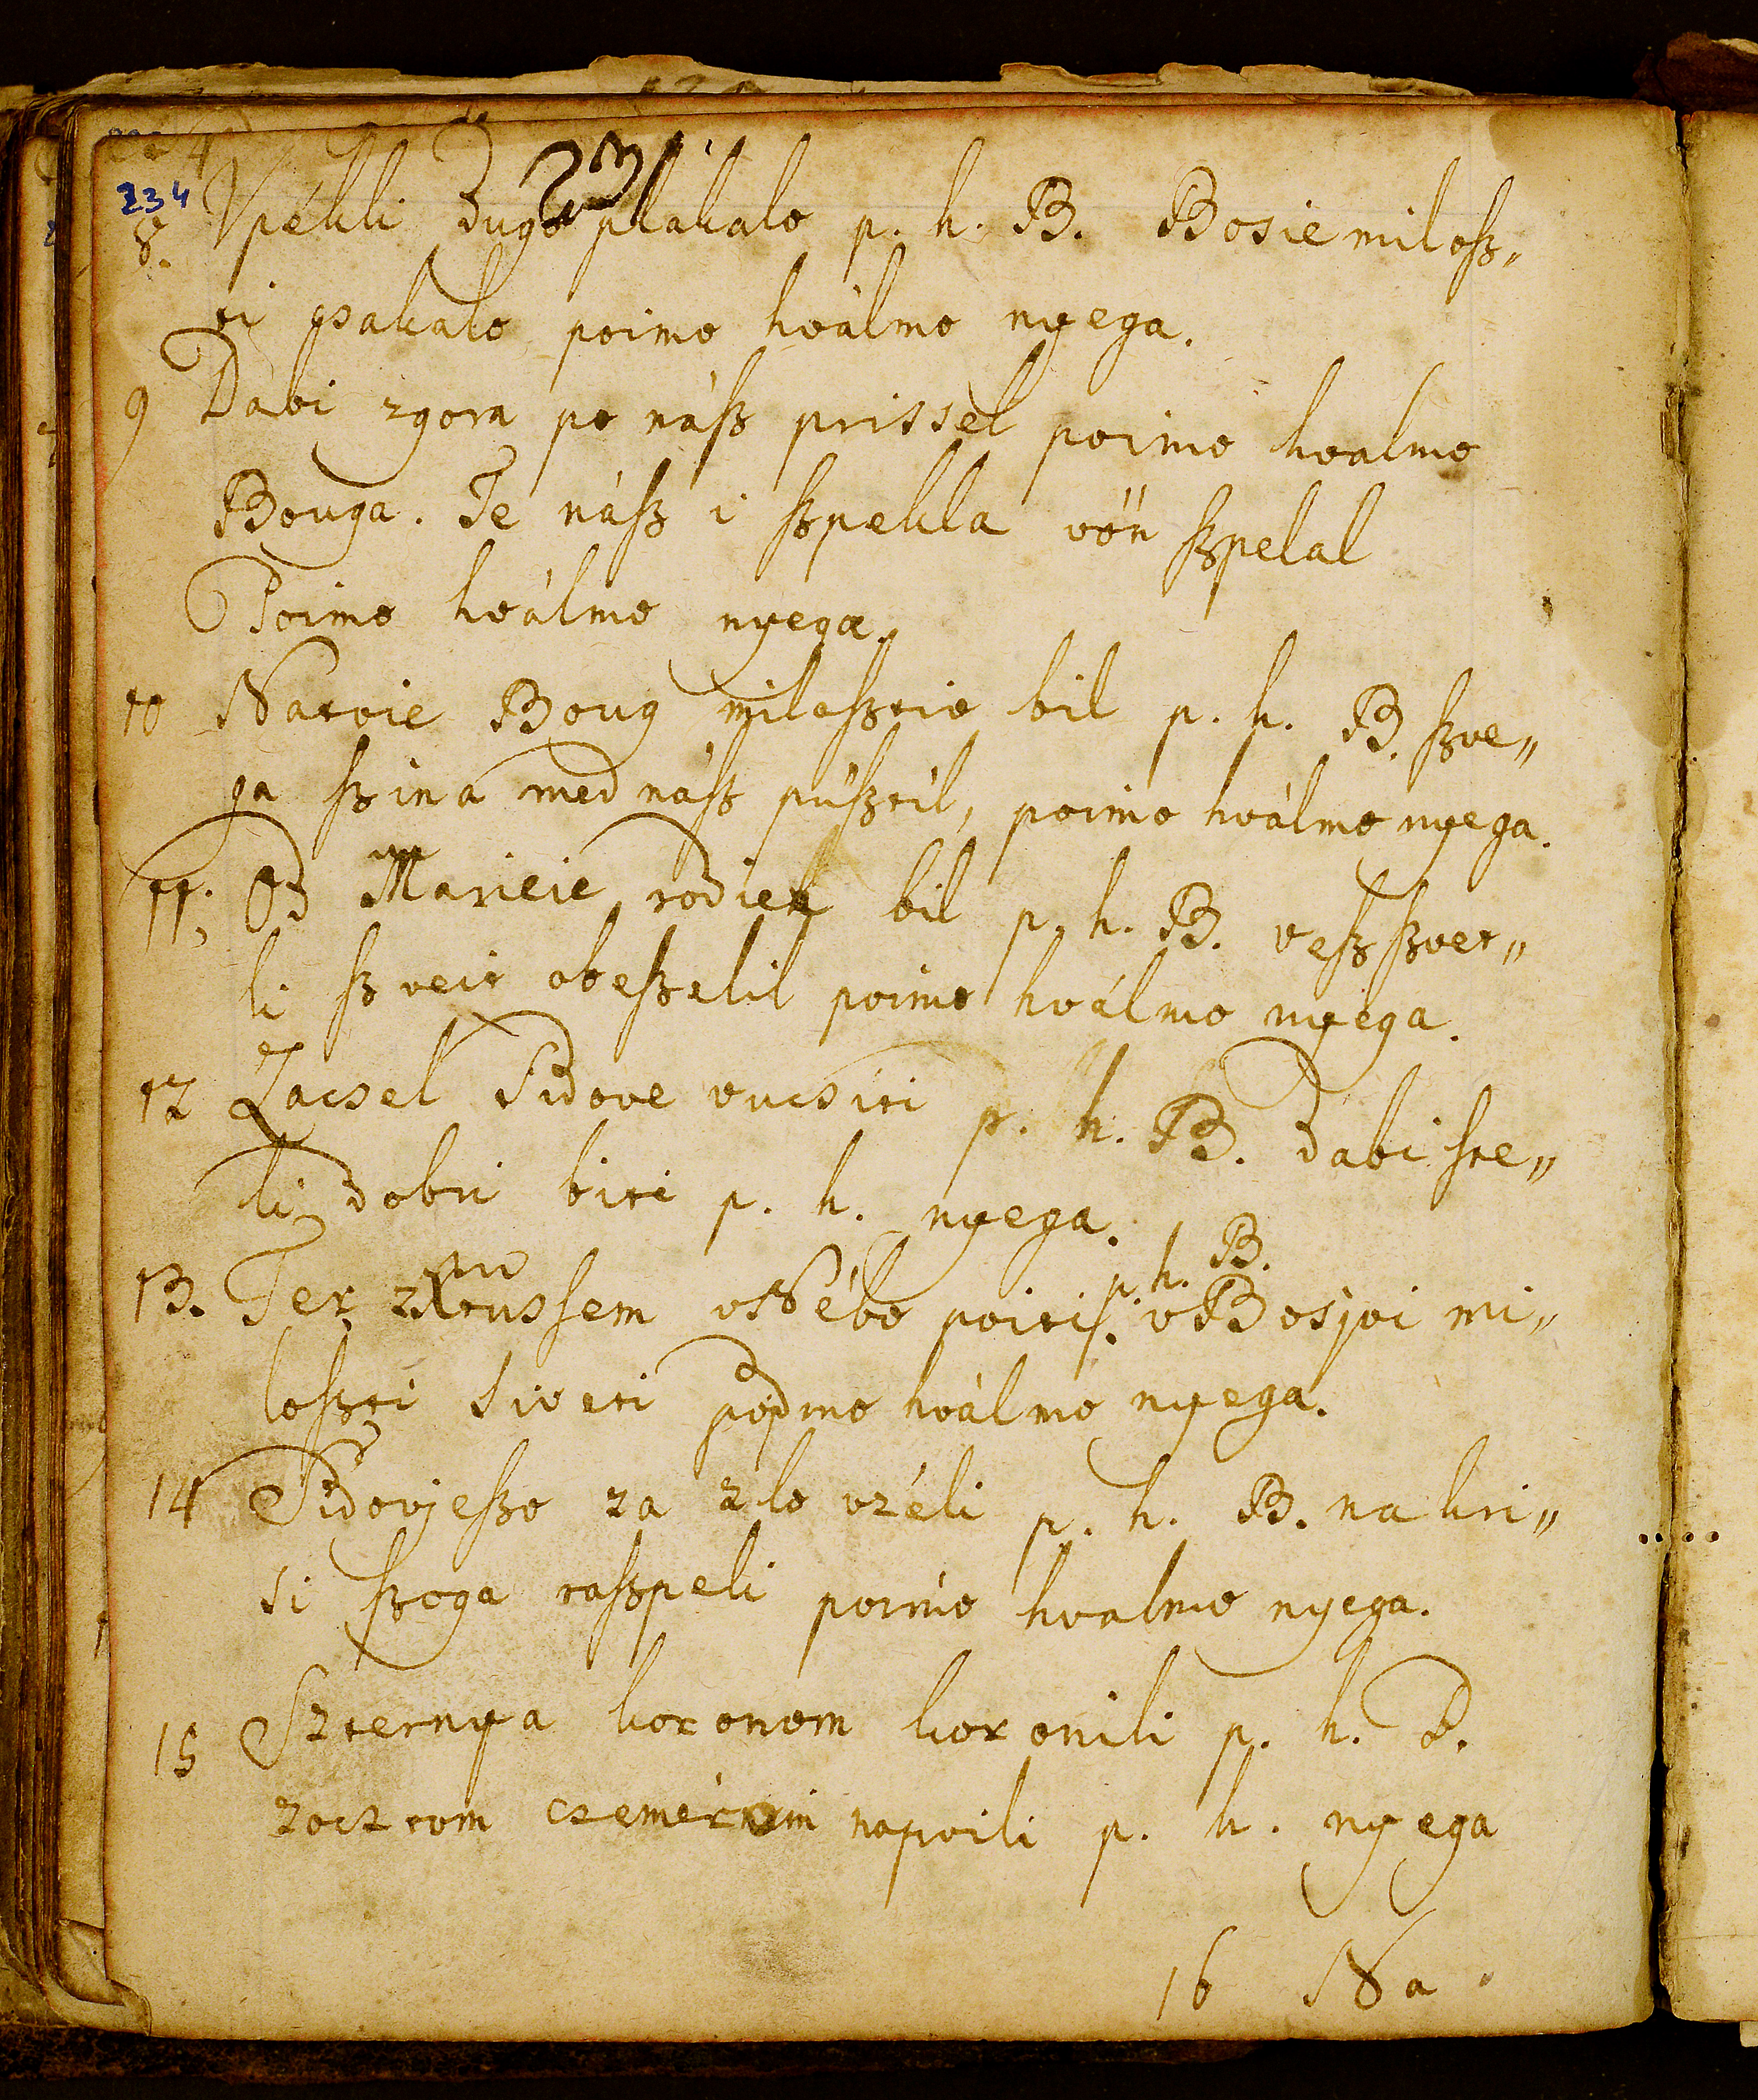 231
234
8. Vpékli dugo plakalo p. h. B. Bosie milosz„
ti csakalo poimo hválmo nyega.
9 Dabi zgora po nász prissel poimo hvalmo
Bouga. Te nász i szpekla vön szpelal
Poimo hválmo nyega.
10 Natoie Boug milosztiv bil p. h. B. szve„
ga szina med nász püsztil, poimo hválmo nyega.
11. Od Marieie rodien bil p. h. B. vesz szvet„
li szveit obeszelil poimo hválmo nyega.
12 Zacsel Sidove vucsiti p. h. B. dabi ste„
li dobri biti p. h. nyega.
p. h. B.
13. Ter z Kroussem vNébo poiti. vBosjoi mi„
loszti siveti pojdmo hválmo nyega.
14 Sidovjeszo za zlo vzéli p. h. B. na kri„
si szoga raszpeli poimo hvalmo nyega.
15 Szternya koronom koronili p. h. B.
zocztom czemérnim napoili p. h. nyega
16 Na